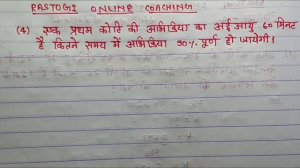 RASTOGI ONLINE COACHING
(4) एक प्रथम कोटि की अभिक्रिया का अर्द्ध आयु 60 मिनट
है कितने समय में अभिक्रिया 90% पूर्ण हो जायेगी?